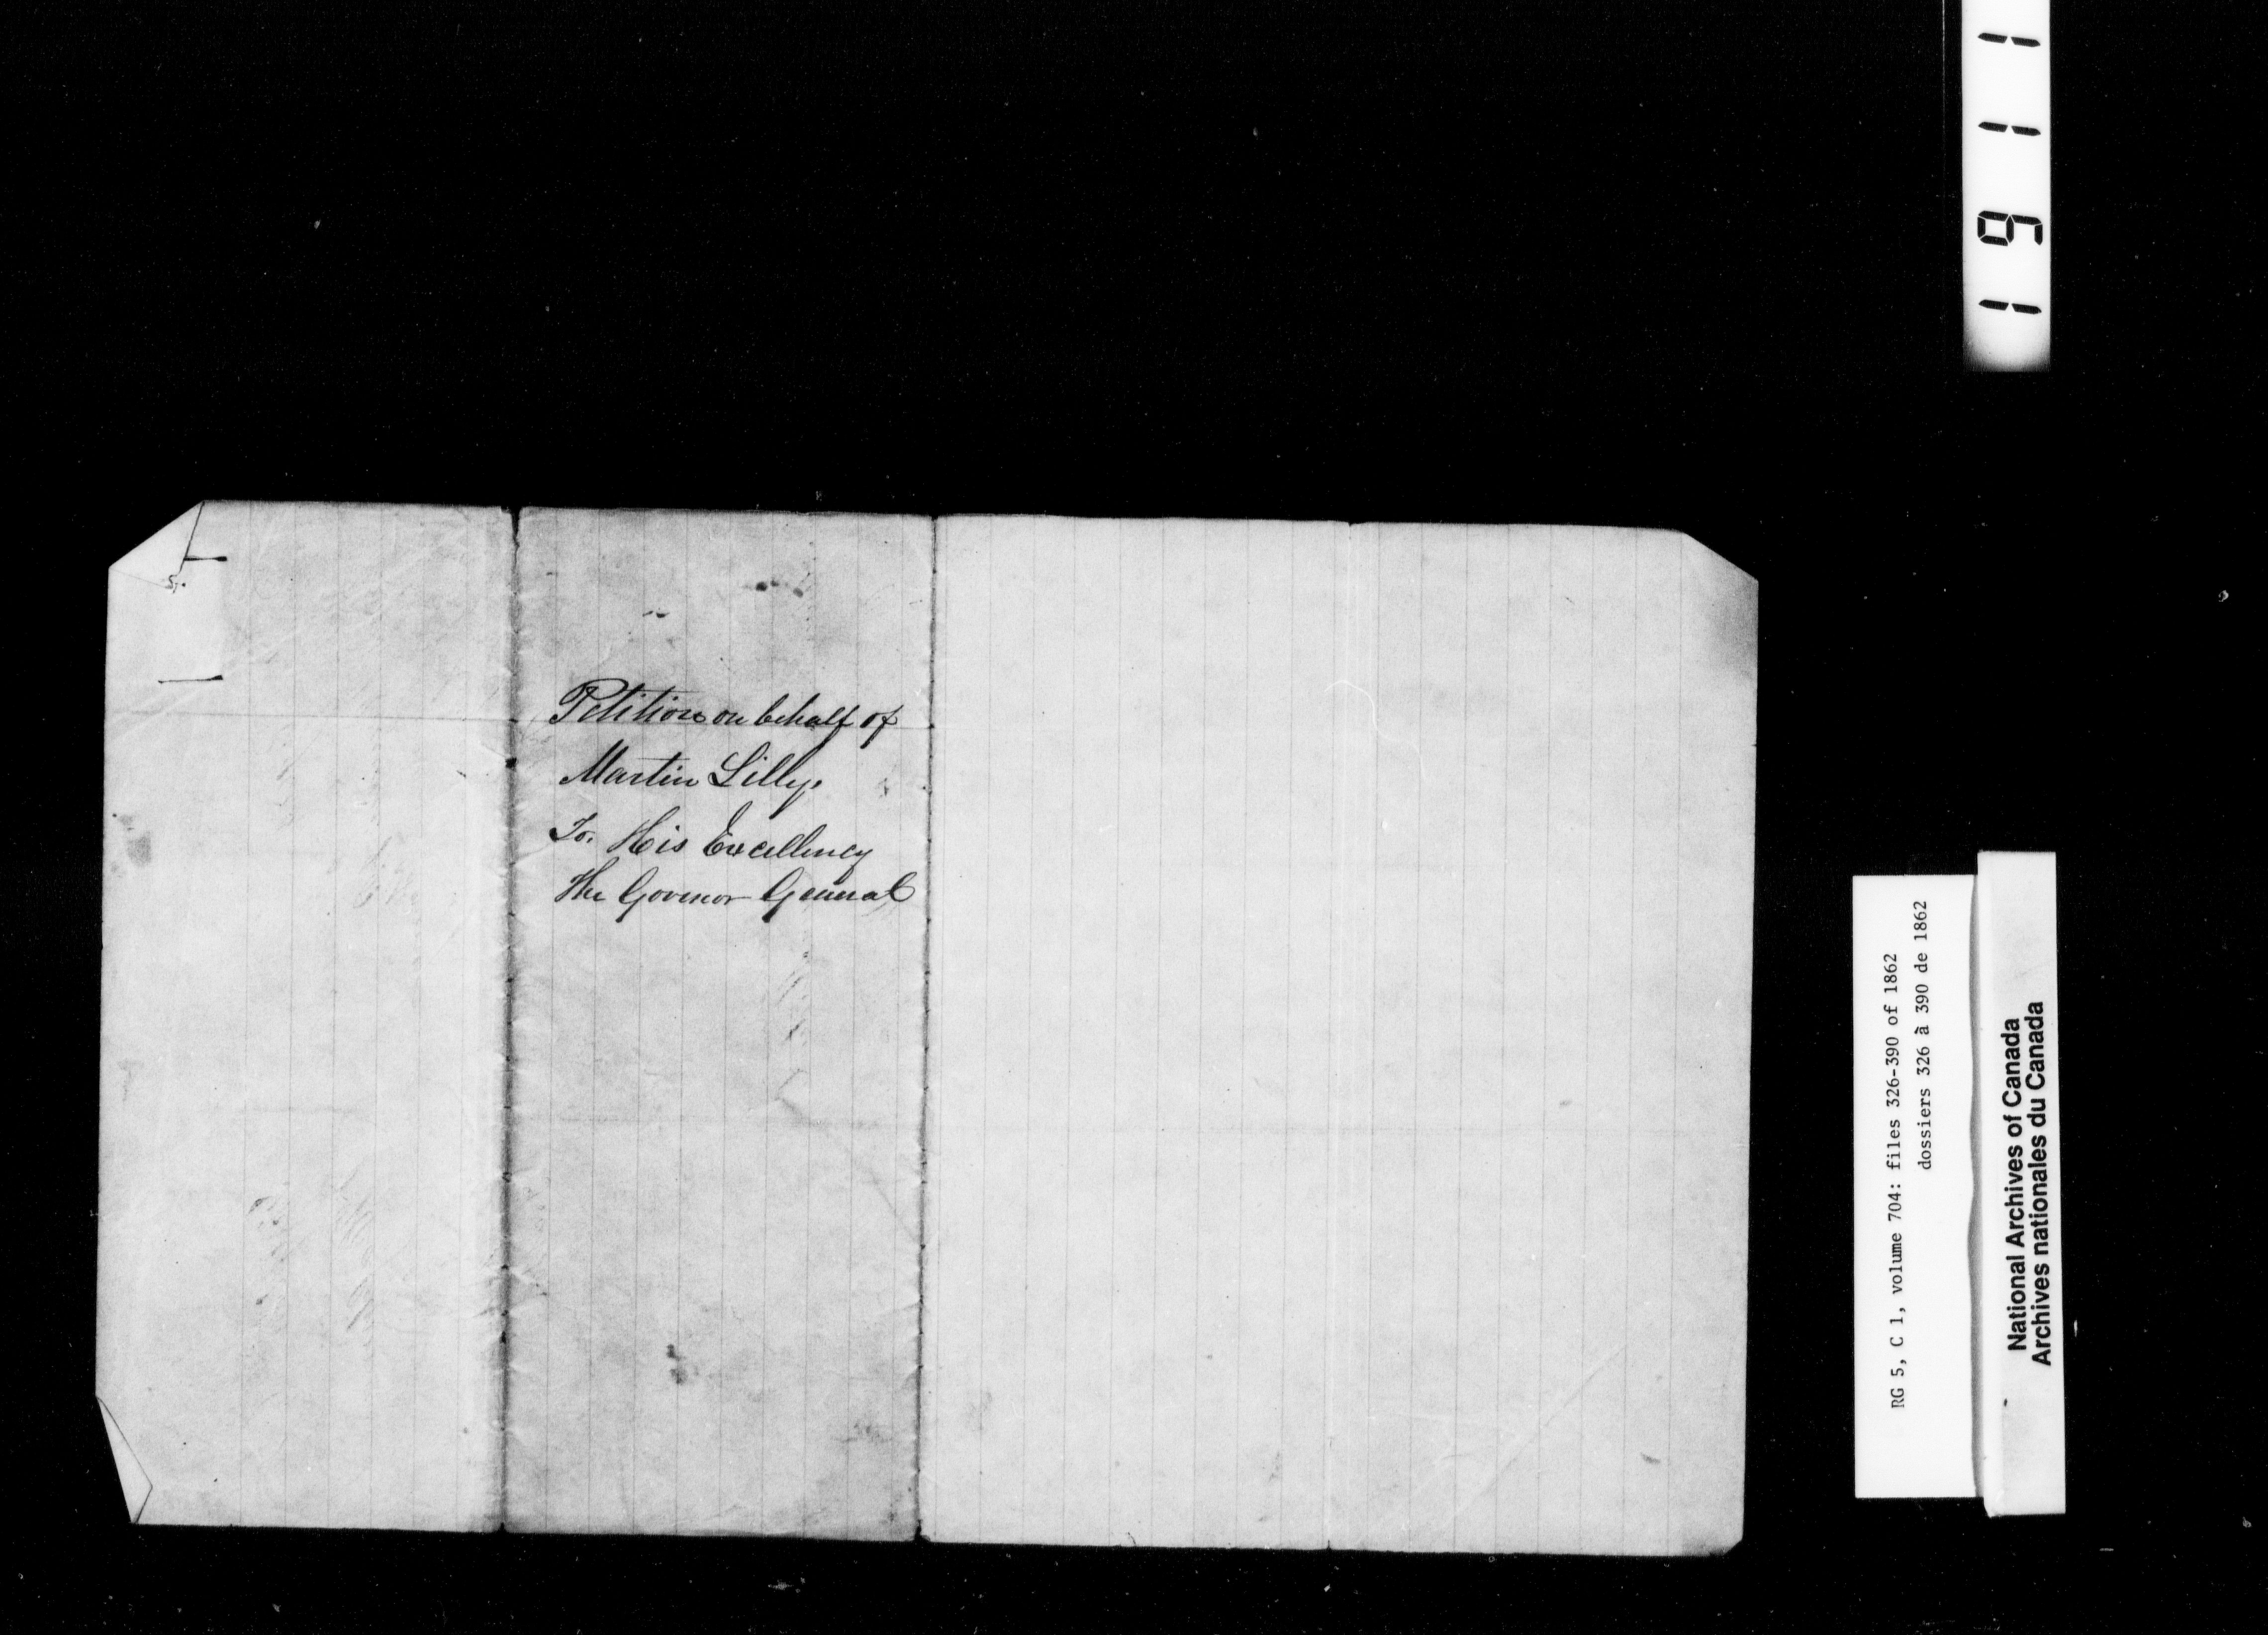 Petition on behalf of
Martin Lilly.
To. His Excellency
The Govenor General
RG 5, C 1, volume 704: files 326-390 of 1862
dossiers 326 à 390 de 1862
National Archives of Canada
Archives nationales du Canada
1911